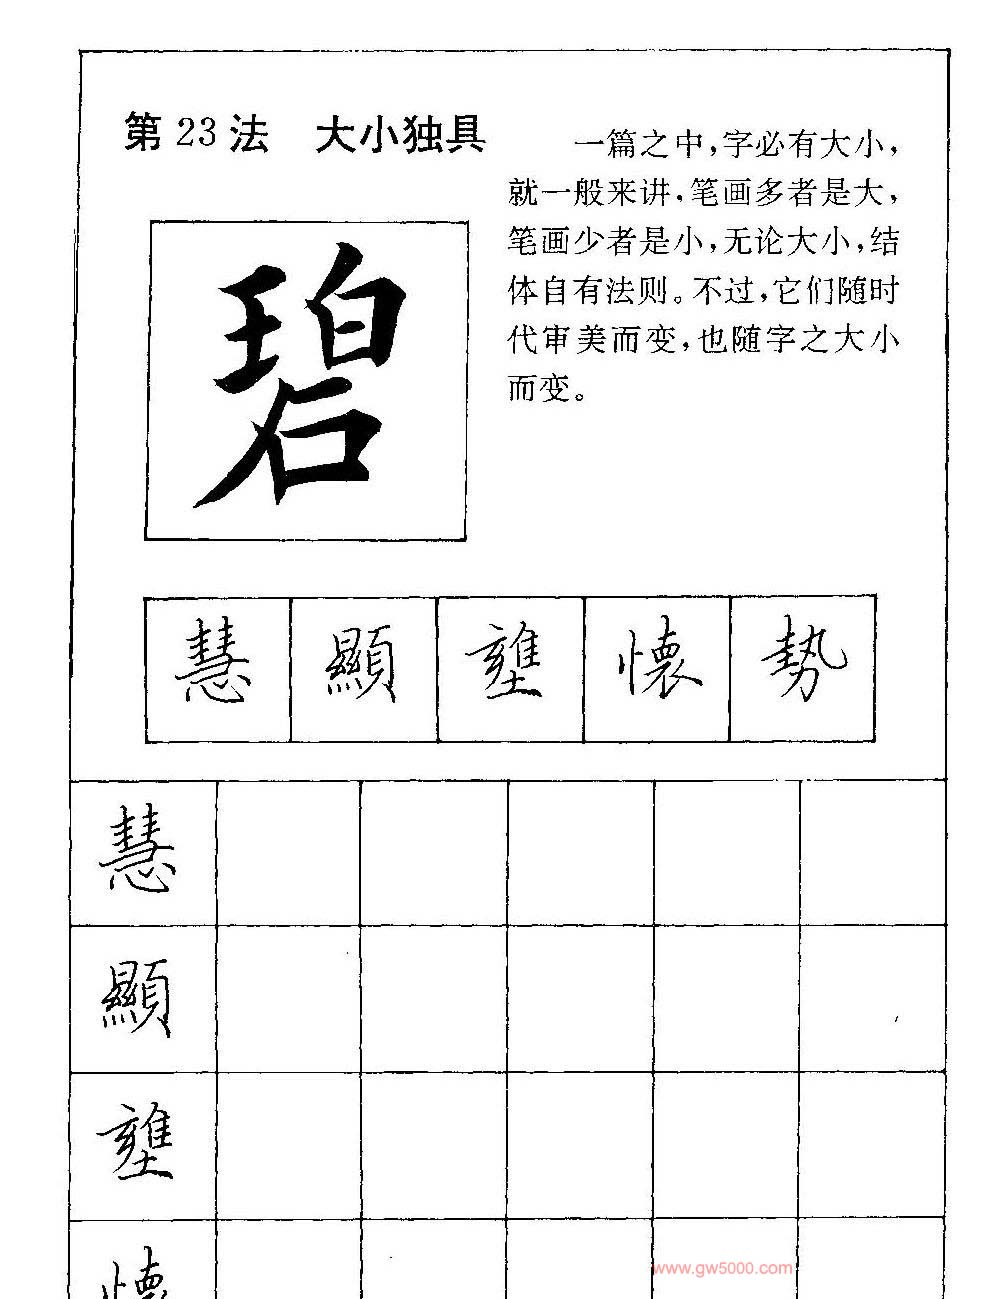 第23法 大小独具
一篇之中，字必有大小，
就一般来讲，笔画多者是大，
笔画少者是小，无论大小，结
体自有法则。不过，它们随时
代审美而变，也随字之大小
而变。
碧
慧 顯 壅 懷 勢
慧
顯
壅
懷
www.gw5000.com